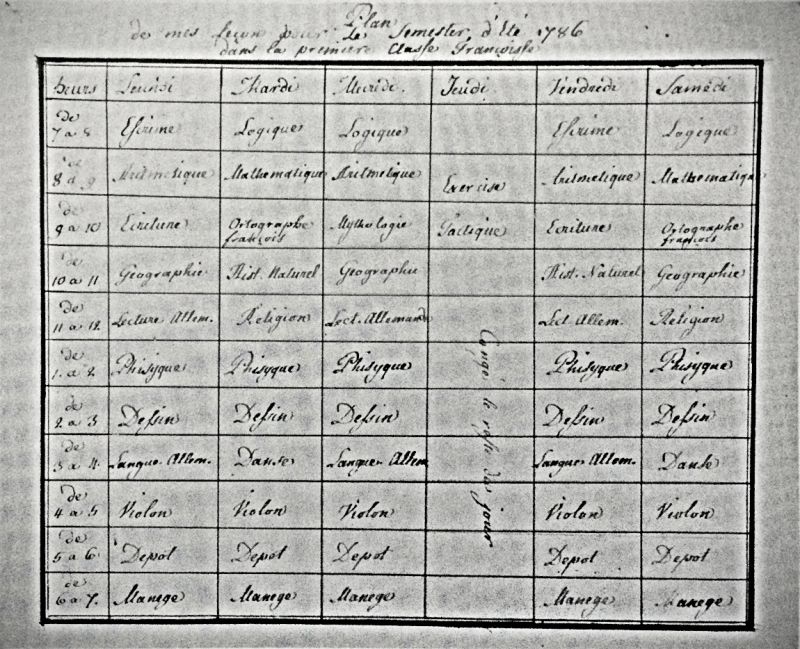 Plan
de mes leçon pour Le Semester, d'Eté 1786
dans la premiere Classe Françoise
heurs Leundi Mardi Mercrede. Jeudi Vendrede Samedi
de 7 a 8 Escrime Logique Logique Escrime Logique
de 8 a 9 Aritmetique Mathematique Aritmetique Exercise Aritmetique Mathematique
de 9 a 10 Ecriture Ortographe françois Mythologie Tactique Ecriture Ortographe françois
de 10 a 11 Geographie Hist. Naturel Geographie Hist. Naturel Geographie
de 11 a 12. Lecture Allem. Religion Lect. Allemande Lect Allem. Religion
de 1. a 2 Phisyque Phisyque Phisyque Phisyque Phisyque
de 2 a 3 Dessin Dessin Dessin Dessin Dessin
de 3 a 4. Langue Allem. Danse Langue Allem Langue Allem. Danse
de 4 a 5 Violon Violon Violon Violon Violon
de 5 a 6 Depot Depot Depot Depot Depot
de 6 a 7. Manege Manege Manege Manege Manege
Congé le reste du jour